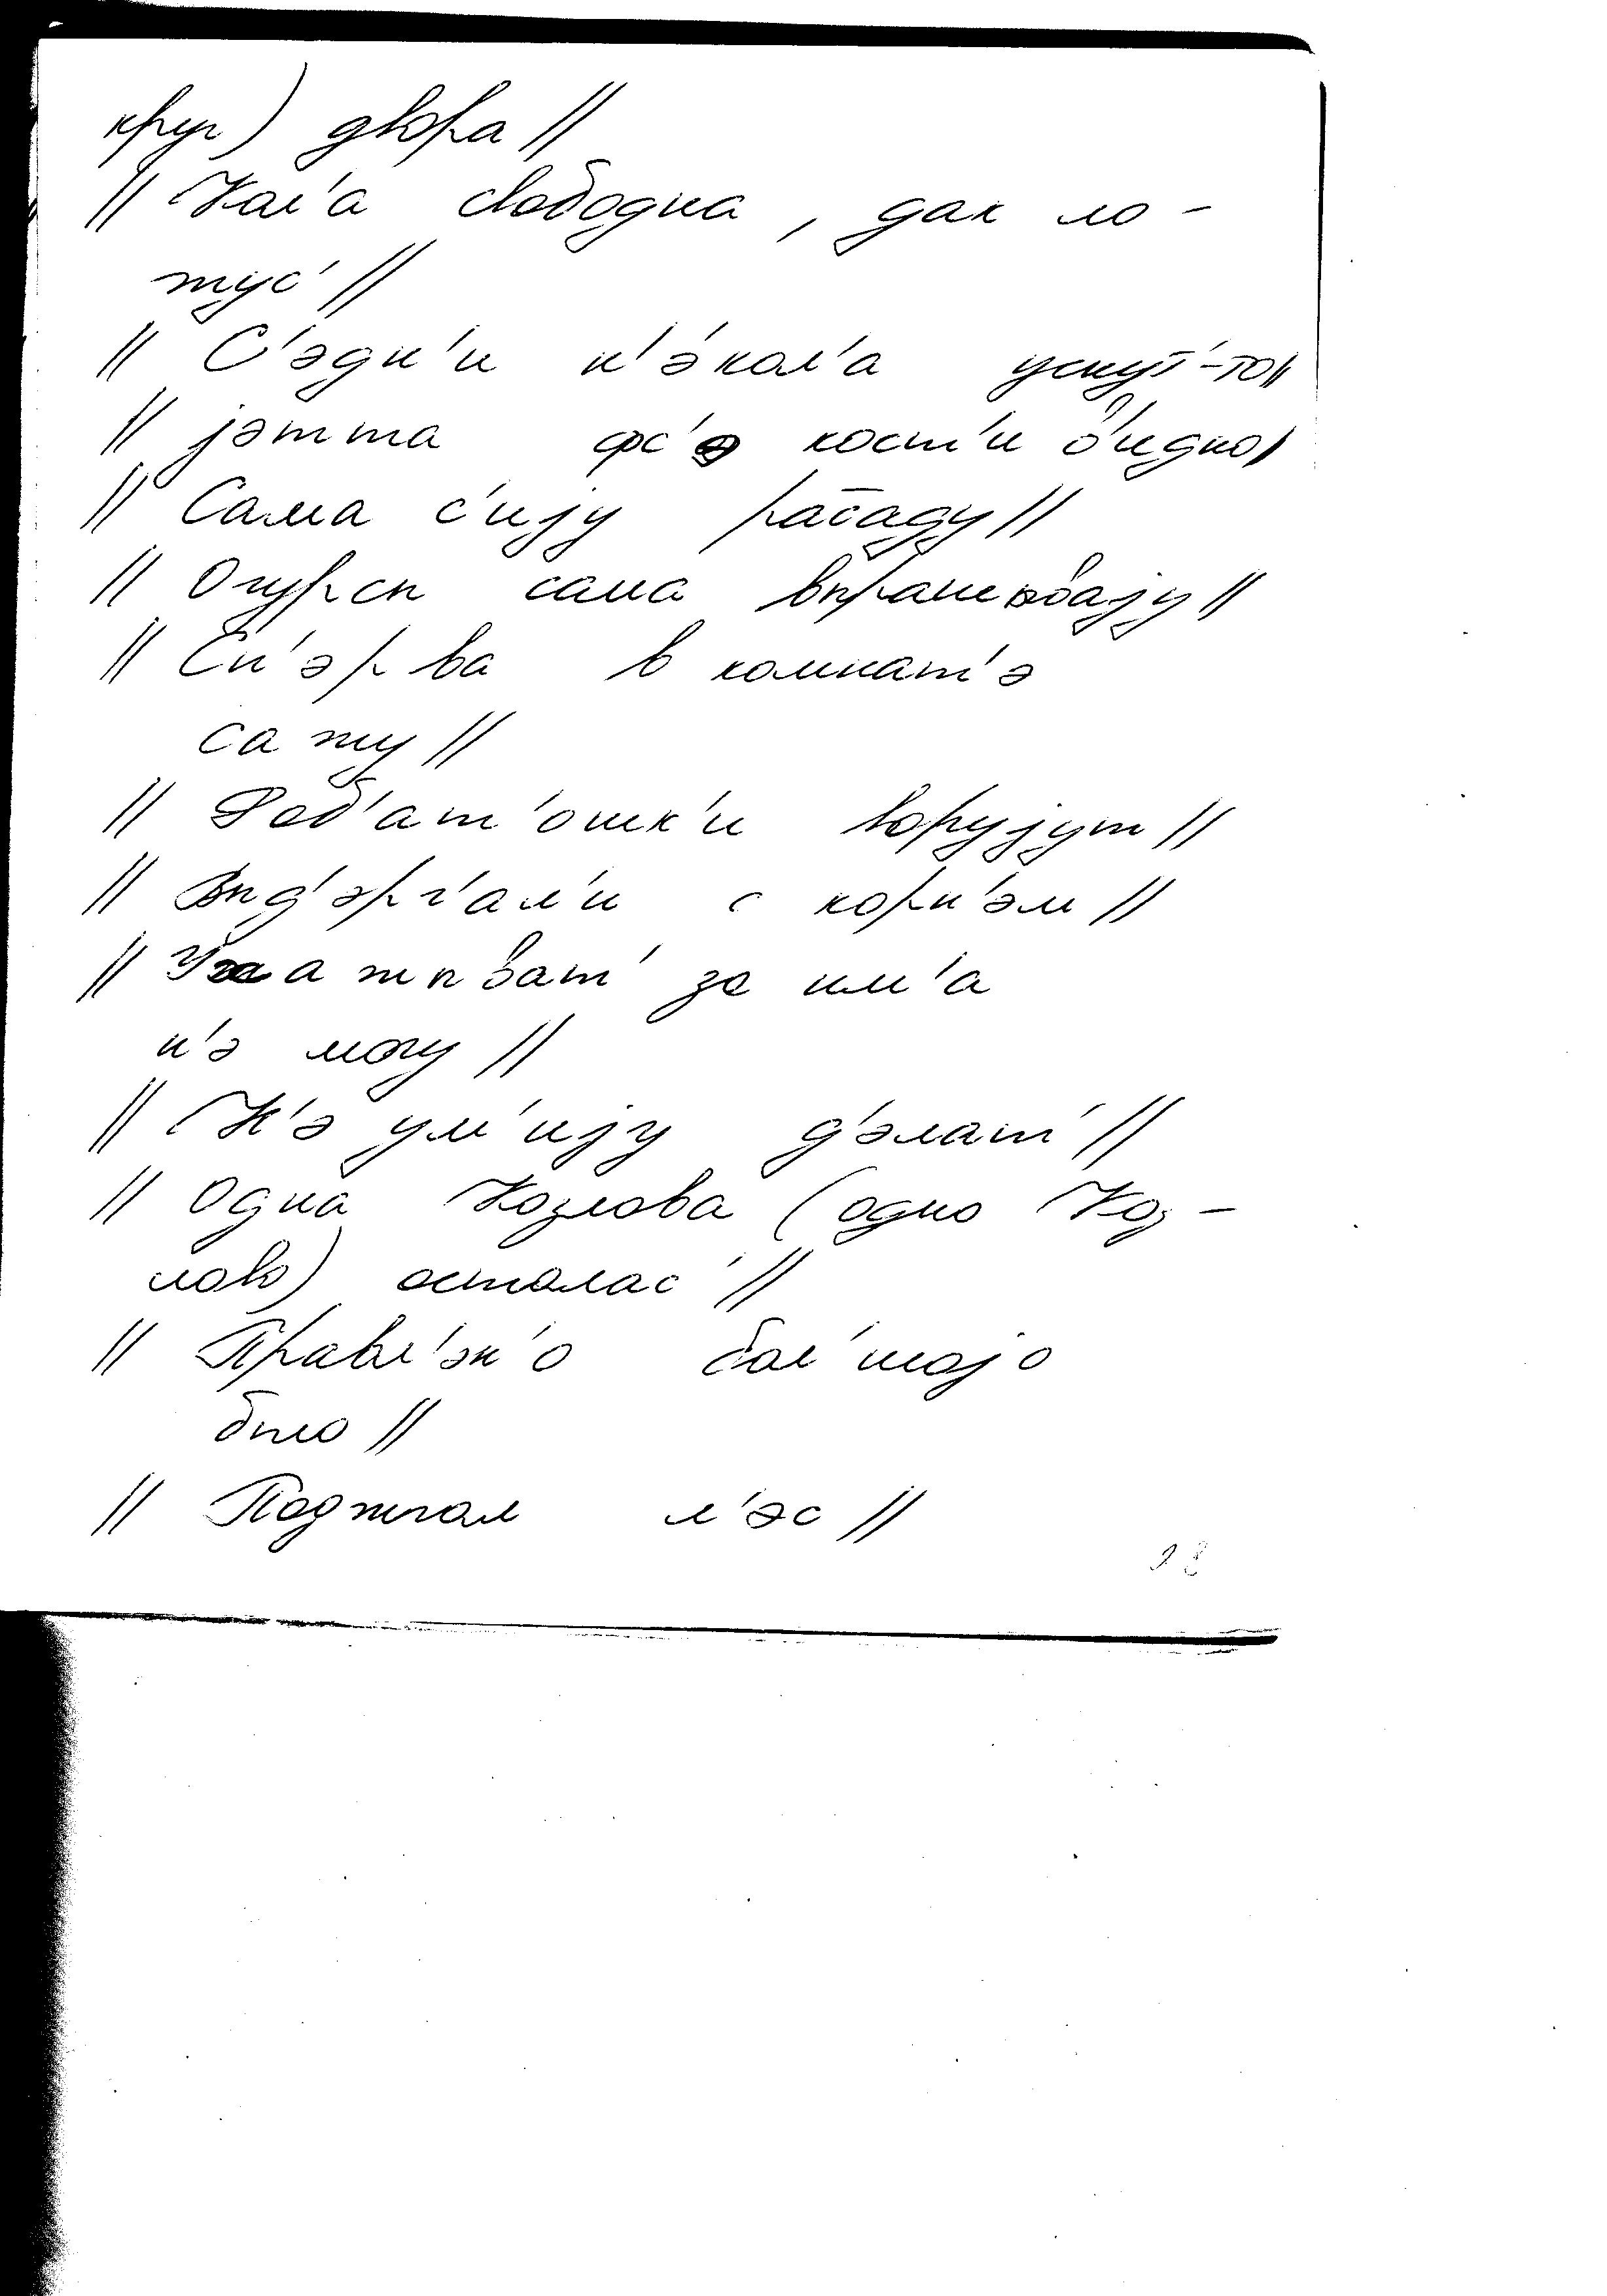 круг) двора //
// Кол'а свободна, дак ло-
жус' //
// С'эдн'и н'экол'а уснут'-то //
// jэтта фс'о кост'и в'идно //
// Сама с'иjу рас̄аду //
// Огурсы сама выращываjу //
// Сп'эрва в комнат'э
сажу //
// Роб'ат'ошк'и воруjут //
// Выд'эрг'ал'и с корн'эм //
// Ухажыват' за им'а
н'э могу //
// Н'э ум'иjу д'элат' //
// Одна Козлова (одно Коз-
лово) осталас' //
// Правл'эн'о бол'шоjо
было //
// Поджгал л'эс //
98